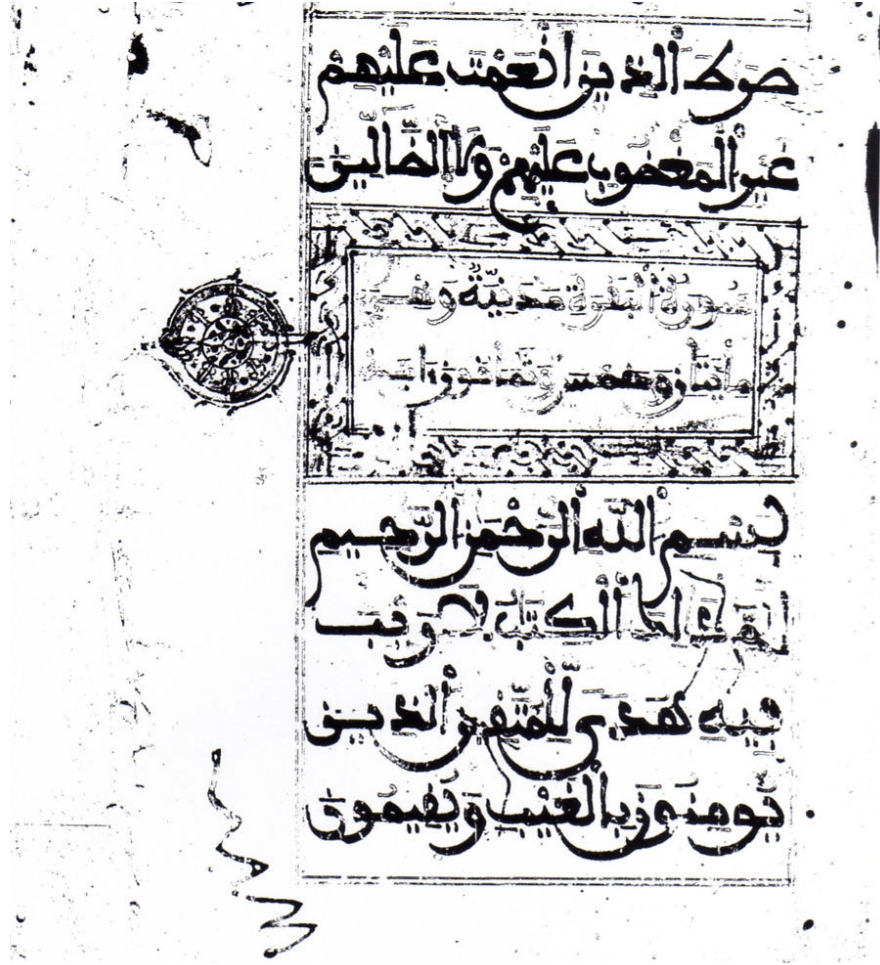 صرط الذين أنعمت عليهم
غير المغضوب عليهم ولا الضالين
سورة البقرة مدنية وهي
مايتان وخمس وثمانون اية
بسم الله الرحمن الرحيم
الم ذلك الكتب لا ريب
فيه هدى للمتقين الذين
يومنون بالغيب ويقيمون